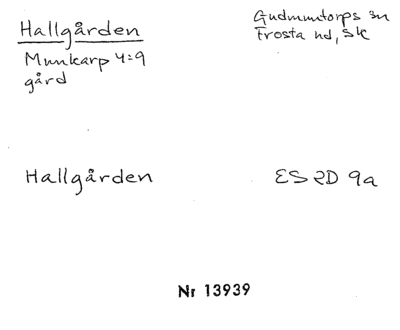 Hallgården
Gudmuntorps sn
Frosta hd, Sk
Munkarp 4:9
gård
Hallgården
ES 2D 9a
Nr 13939